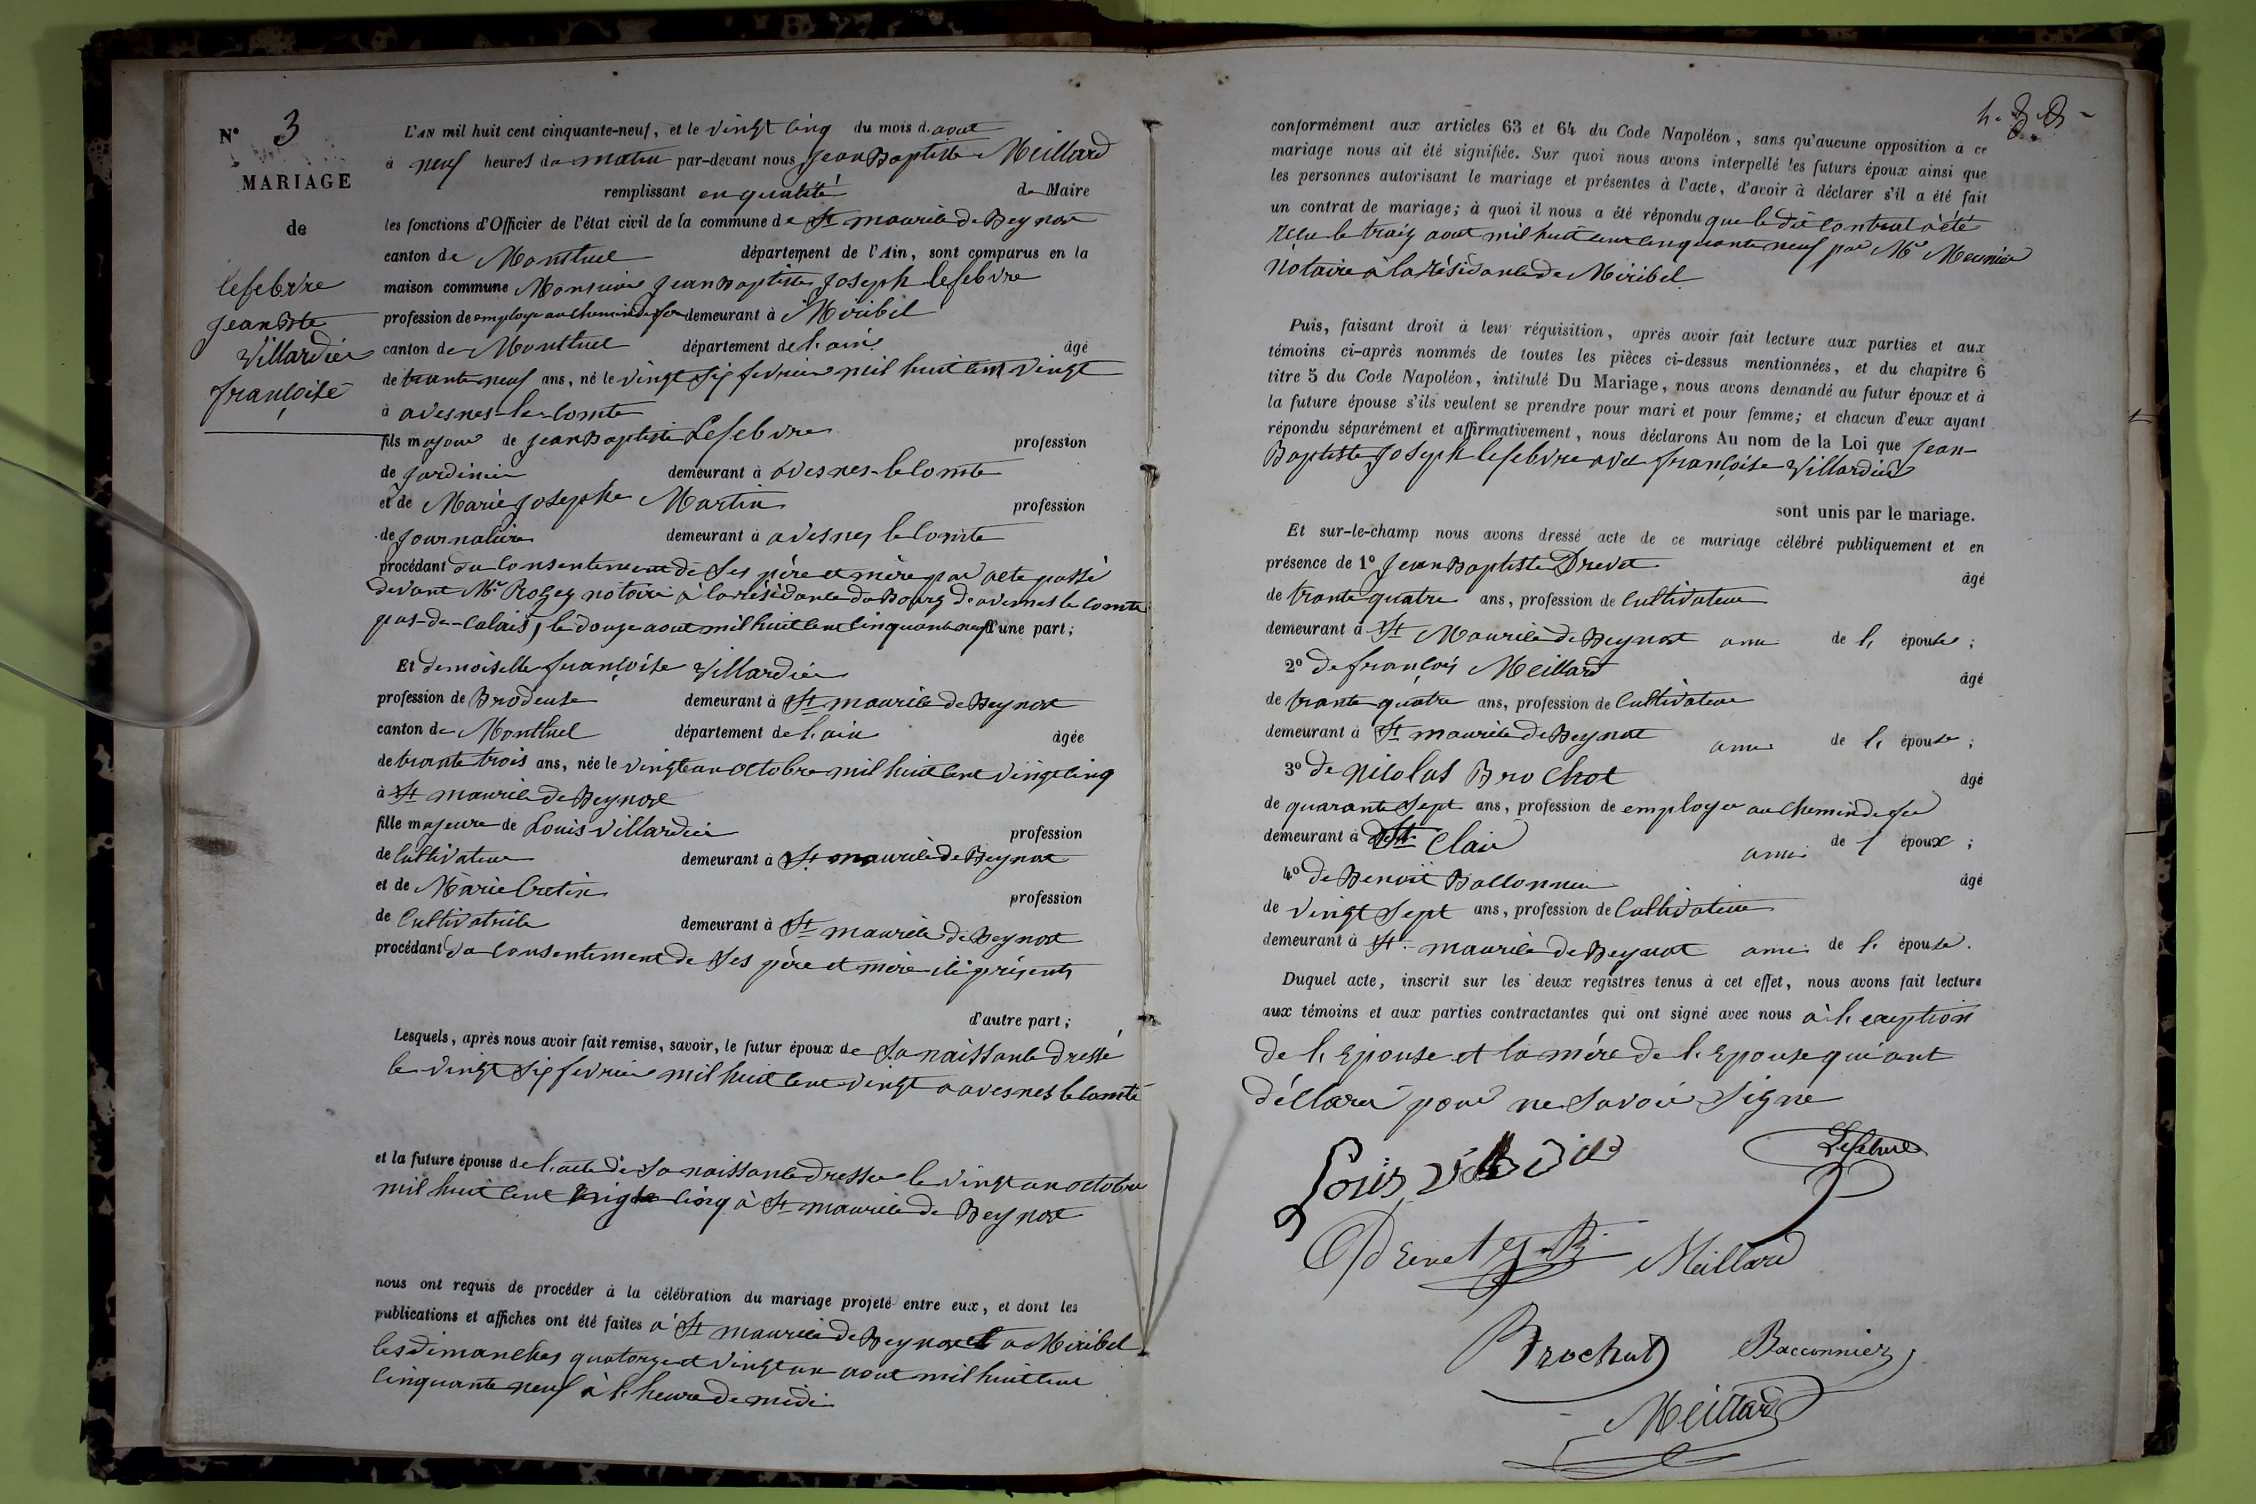 N° 3
MARIAGE
de
lefebvre
Jean Bte
Villardier
françoise
L'AN mil huit cent cinquante-neuf, et le vingt cinq du mois d. aout
à neuf heures du matin par-devant nous Jean Baptiste Meillard
remplissant en qualité de Maire
les fonctions d'Officier de l'état civil de la commune de St maurice de Beynost
canton de Montluel département de l'Ain, sont comparus en la
maison commune Monsieur Jean Baptiste Joseph lefebvre
profession de employe au chemin de fer demeurant à Miribel
canton de Montluel département de l. ain âgé
de trante neuf ans, né le vingt six fevrier mil huit cent vingt
à avesnes-le-comte
fils majeur de Jean Baptiste Lefebvre profession
de Jardinier demeurant à avesnes-le comte
et de Marie Josephe Martin profession
de Journalière demeurant à avesnes le comte
procédant du consentement de ses père et mère par acte passé
devant Me Rogez notaire à la résidance du Bourg de avesnes le comte
pas-de-calais, le douze aout mil huit cent cinquante neuf d'une part;
Et demoiselle françoise Villardier
profession de Brodeuse demeurant à St maurice de Beynost
canton de Montluel département de l. ain âgée
de trante trois ans, née le vingt un octobre mil huit cent vingt cinq
à St maurice de Beynost
fille majeure de Louis Villardier profession
de Cultivateur demeurant à St maurice de Beynost
et de Marie Cretin profession
de Cultivatrice demeurant à St maurice de Beynost
procédant du consentement de ses père et mère ici présents
d'autre part;
Lesquels, après nous avoir fait remise, savoir, le futur époux de sa naissance dressé
le vingt six fevrier mil huit cent vingt a avesnes le comte
et la future épouse de l. acte de sa naissance dressee le vingt un octobre
mil huit cent vingt cinq à St maurice de Beynost
nous ont requis de procéder à la célébration du mariage projeté entre eux, et dont les
publications et affiches ont été faites a St maurice de Beynost et a Miribel
les dimanches quatorze et vingt un aout mil huit cent
cinquante neuf à l. heure de midi
conformément aux articles 63 et 64 du Code Napoléon, sans qu'aucune opposition à ce
mariage nous ait été signifiée. Sur quoi nous avons interpellé les futurs époux ainsi que
les personnes autorisant le mariage et présentes à l'acte, d'avoir à déclarer s'il a été fait
un contrat de mariage; à quoi il nous a été répondu que le dit contrat à été
recu le traize aout mil huit cent cinquante neuf par Me Meunier
notaire à la résidance de Miribel
Puis, faisant droit à leur réquisition, après avoir fait lecture aux parties et aux
témoins ci-après nommés de toutes les pièces ci-dessus mentionnées, et du chapitre 6
titre 5 du Code Napoléon, intitulé Du Mariage, nous avons demandé au futur époux et à
la future épouse s'ils veulent se prendre pour mari et pour femme; et chacun d'eux ayant
répondu séparément et affirmativement, nous déclarons Au nom de la Loi que Jean-
Baptiste Joseph lefebvre avec françoise Villardier
sont unis par le mariage.
Et sur-le-champ nous avons dressé acte de ce mariage célébré publiquement et en
présence de 1° Jean Baptiste Drevet âgé
de trante quatre ans, profession de Cultivateur
demeurant à St Maurice de Beynost ami de l. épouse;
2° de françois Meillard âgé
de trante quatre ans, profession de Cultivateur
demeurant à St maurice de Beynost ami de l. épouse;
3° de nicolas Brochot âgé
de quarante sept ans, profession de employer au chemin de fer
demeurant à St Clair ami de l époux;
4° de Benoit Baconnier âgé
de vingt sept ans, profession de Cultivateur
demeurant à St maurice de Beynost ami de l. épouse.
Duquel acte, inscrit sur les deux registres tenus à cet effet, nous avons fait lecture
aux témoins et aux parties contractantes qui ont signé avec nous à l. exeption
de l. Epouse et la mére de l. Epouse qui ont
déclaré pour ne savoir signe
Louis Lefebvre
Drevet J.B. Meillard
Brochot Bacconnier
Meillard